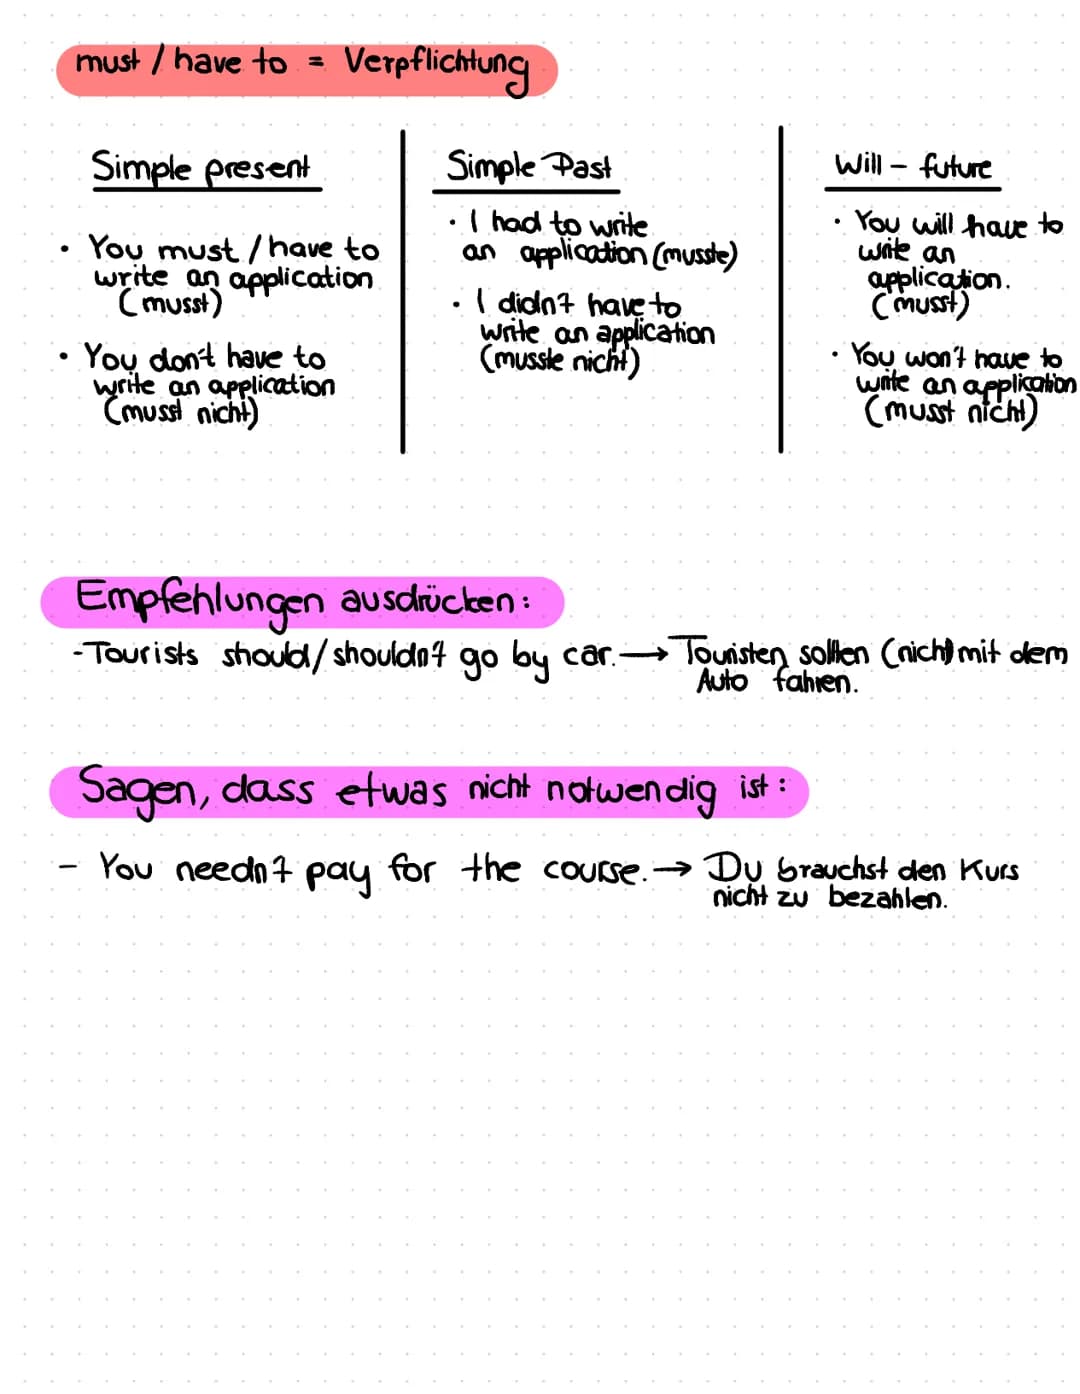 must / have to = Verpflichtung
Simple present
• You must / have to
write an application
(musst)
• You don't have to
write an application
(musst nicht)
Simple Past
• I had to write
an application (musste)
• I didn't have to
write an application
(musste nicht)
Will - future
• You will have to
write an
application.
(musst)
• You won't have to
write an application
(musst nicht)
Empfehlungen ausdrücken:
- Tourists should/shouldn't go by car. → Touristen sollten (nicht) mit dem
Auto fahren.
Sagen, dass etwas nicht notwendig ist:
- You needn't pay for the course. → Du brauchst den Kurs
nicht zu bezahlen.